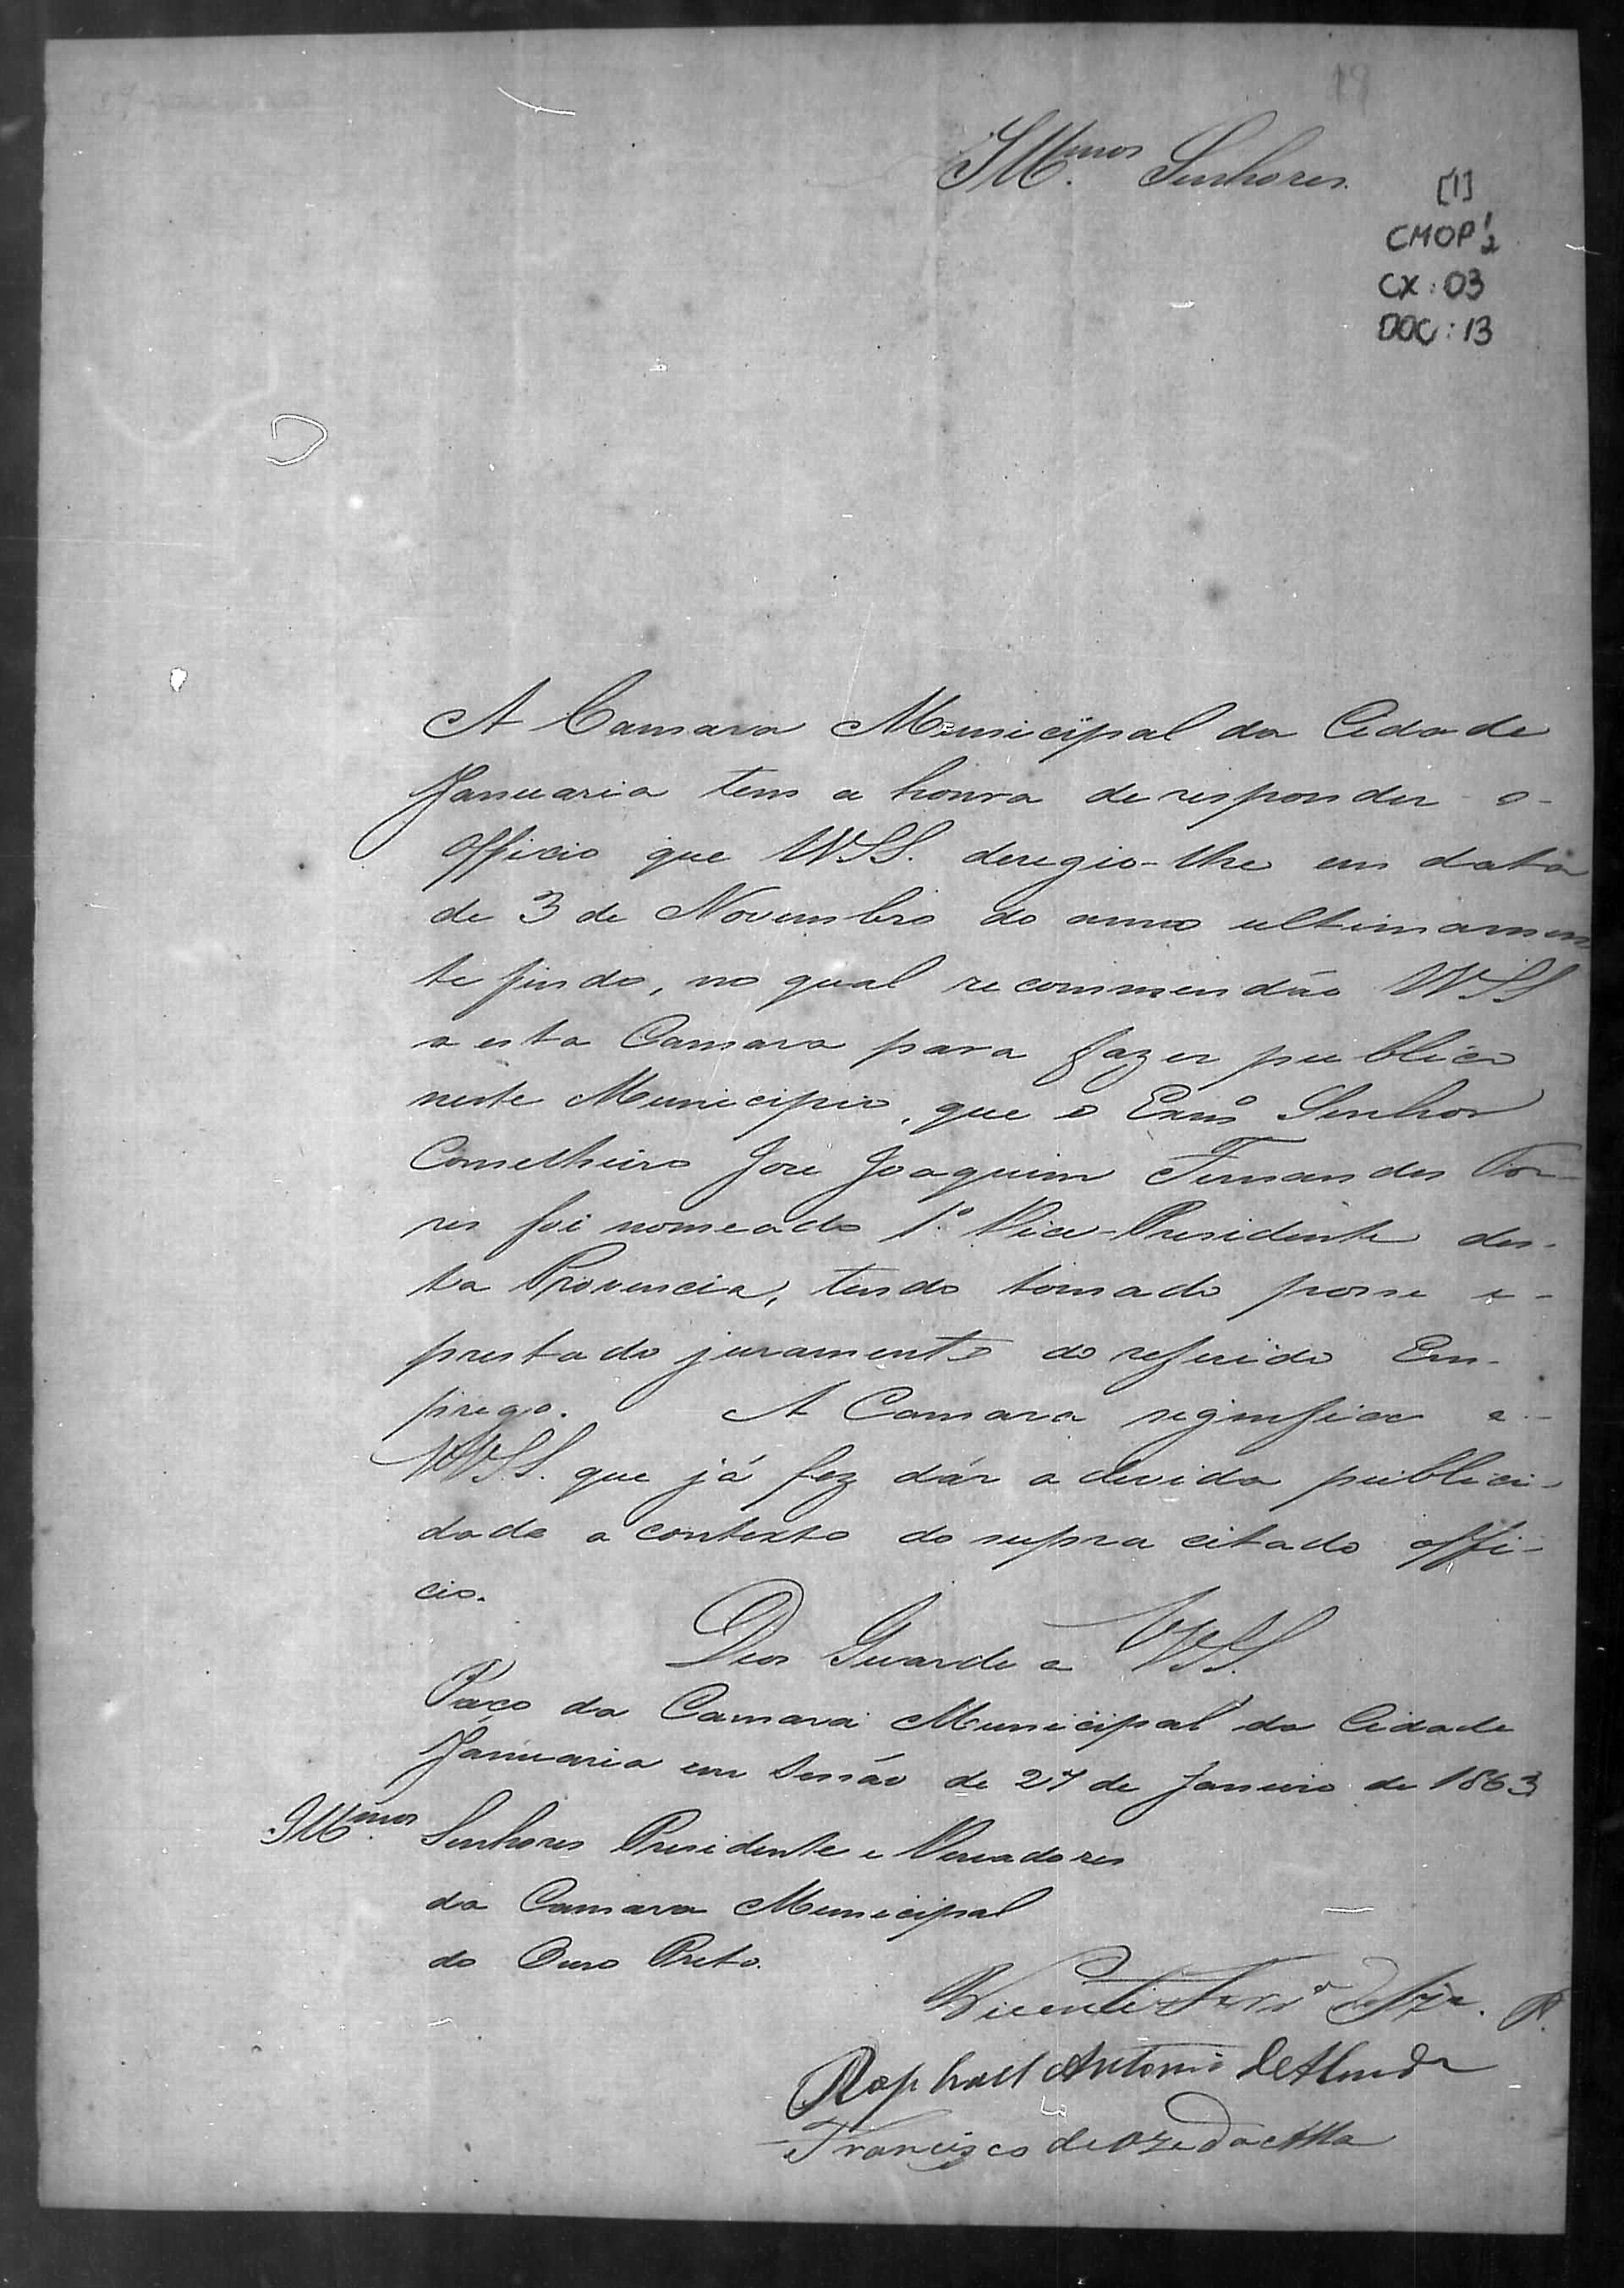 19
Illmos. Senhores.
[1]
CMOP 1/2
CX: 03
DOC: 13
A Camara Municipal da Cidade
Januaria tem a honra de responder o
officio que VVSS. deregio-lhe em data
de 3 de Novembro do anno ultimamen
te findo, no qual recommendão VVSS
a esta Camara para fazer publico
neste Municipio, que o Exmo Senhor
Conselheiro José Joaquim Fernandes Tor-
res foi nomeado 1.º Vice-Presidente des-
ta Provencia, tendo tomado posse e
prestado juramento do referido Em-
prego. A Camara segnifica a
VVSS. que já fez dár a devida publici-
dade a contexto do supra citado offi-
cio.
Deos Guarde a VVSS.
Paço da Camara Municipal da Cidade
Januaria em Sessão de 27 de Janeiro de 1863
Illmos. Senhores Presidente e Vereadores
da Camara Municipal
do Ouro Preto.
Vicente P.
Raphael Antonio
Francisco de